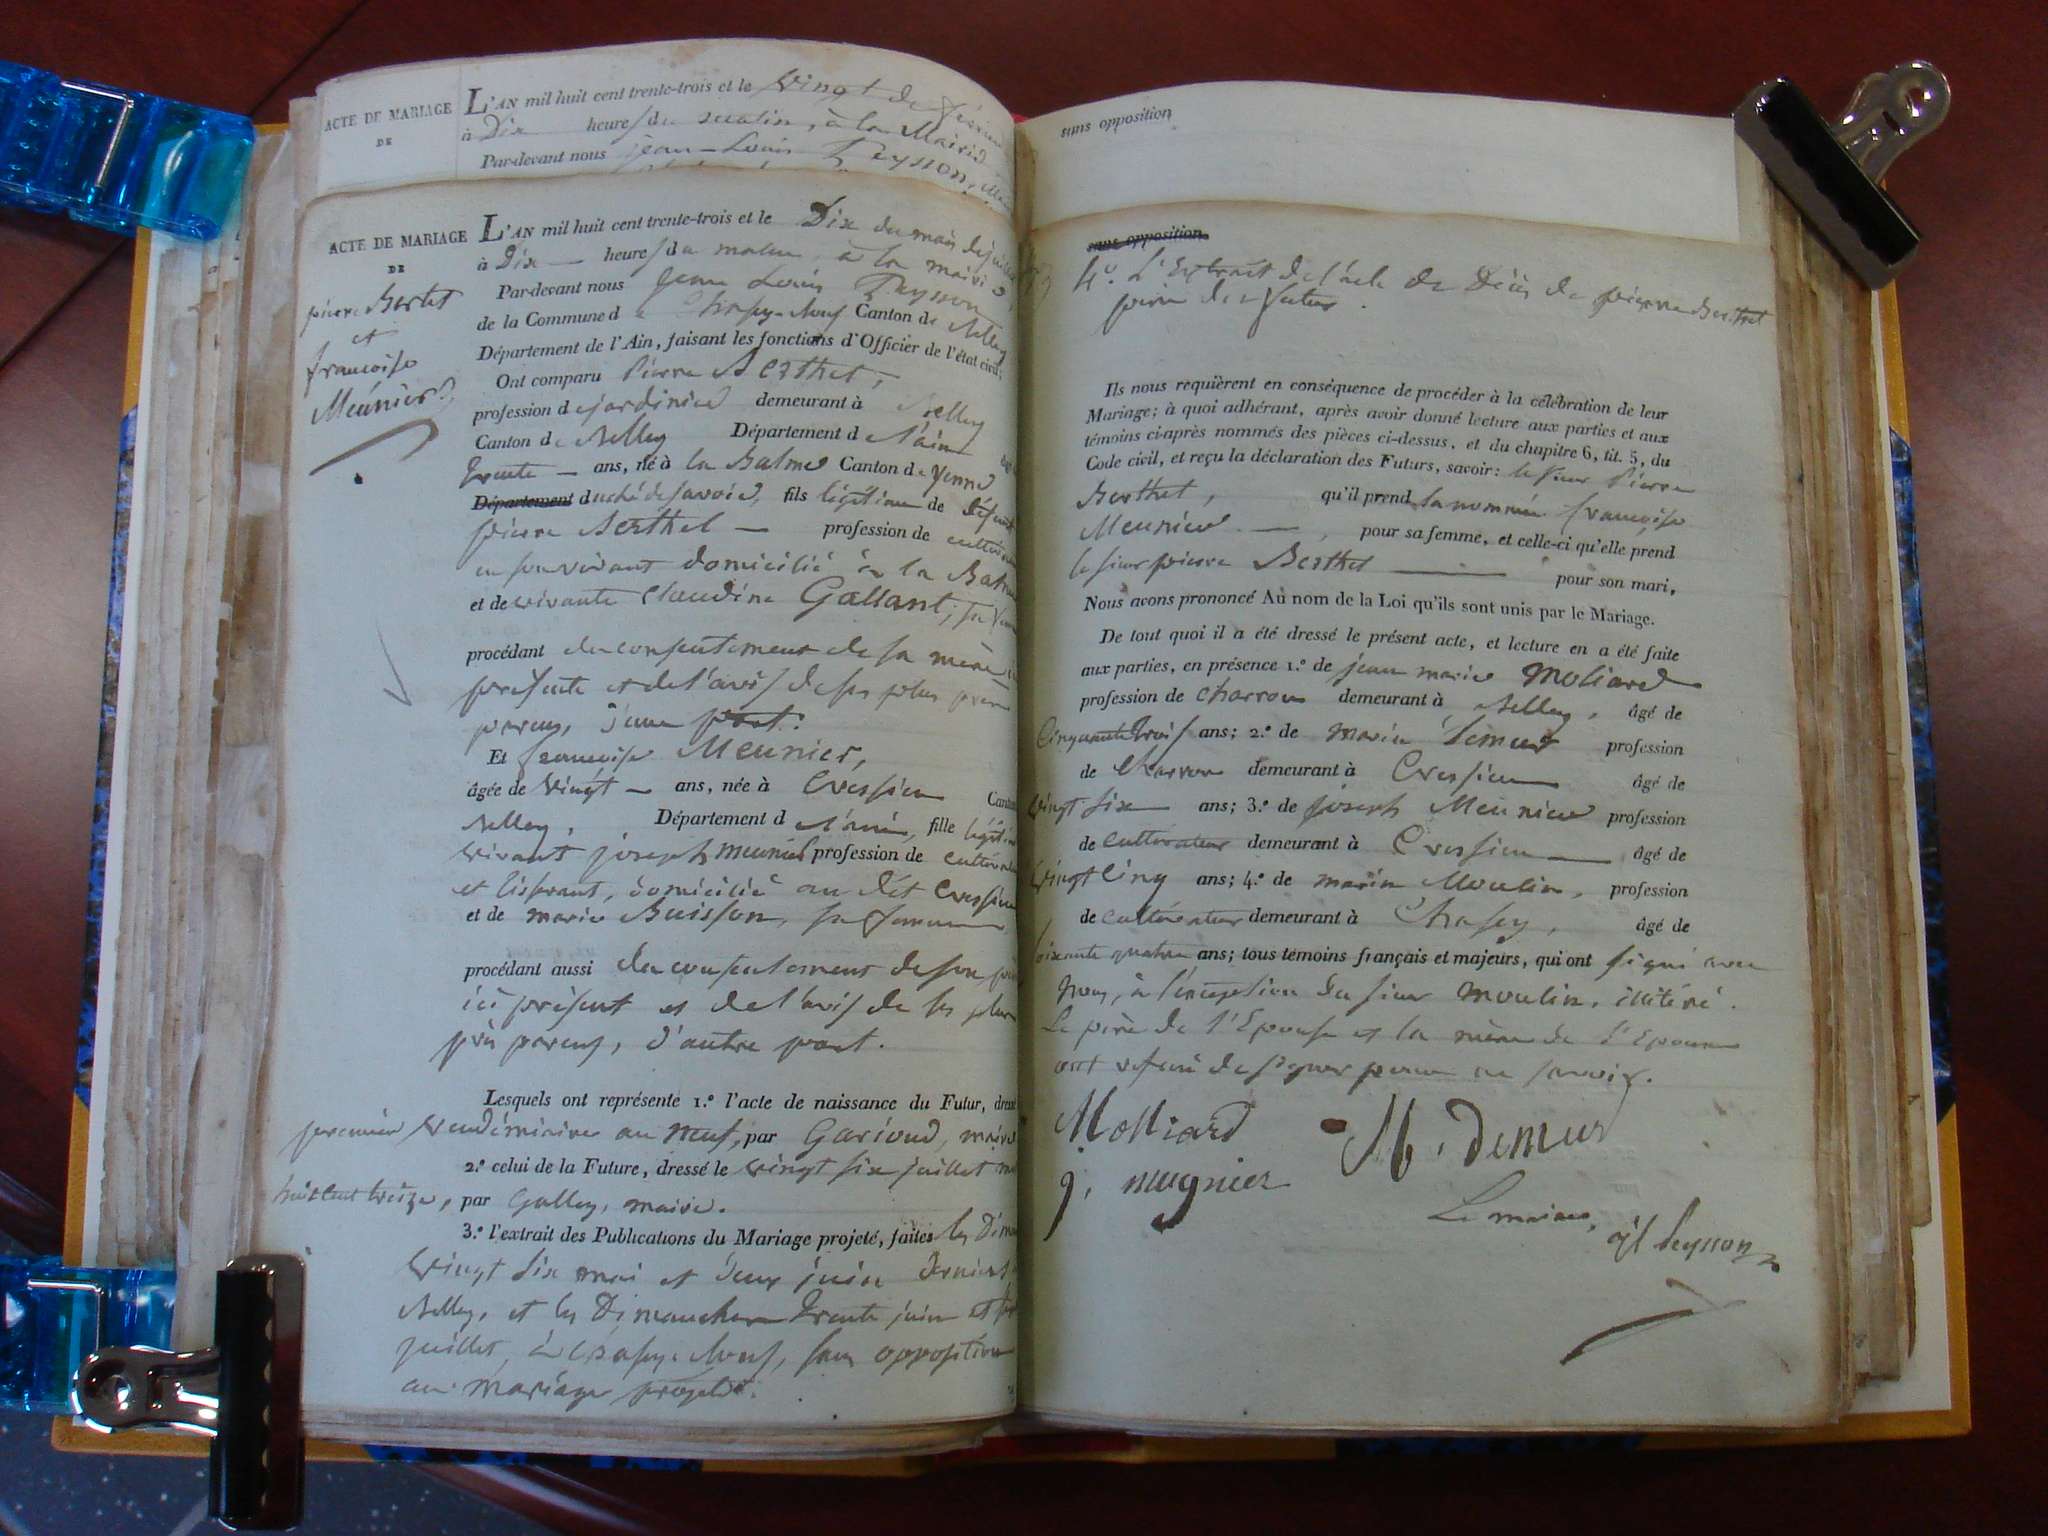 ACTE DE MARIAGE
DE
L'AN mil huit cent trente-trois et le vingt de
à Dix heures du matin, à la Mairie
Par-devant nous jean-Louis Peysson,
sans opposition
ACTE DE MARIAGE
DE
pierre Bertet
et
francoise
Meúnier
L'AN mil huit cent trente-trois et le Dix du mois de juillet
à Dix heures du matin, à la mairie
Par-devant nous Jean Louis Peysson
de la Commune de Chasey-Neuf Canton de Belley
Département de l'Ain, faisant les fonctions d'Officier de l'état civil;
Ont comparu Pierre Berthet,
profession de jardinier demeurant à Belley
Canton de Belley Département de l'ain
trente ans, né à la Balme Canton de Yenne
Département duché de savoie, fils légitime de défunt
pierre Berthet profession de cultivateur
en son vivant domicilié à la Balme
et de vivante Claudine Gallant, sa
procédant du consentement de sa mère
présente et de l'avis de ses plus près
parens, d'une part.
Et francoise Meunier,
âgée de vingt ans, née à Cressieu Canton
Belley, Département de l'ain, fille légitime
vivant joseph meunier profession de cultivateur
et tisserant, domicilié au dit Cressieu
et de marie Buisson, sa femme
procédant aussi du consentement de son père
ici présent et de l'avis de ses plus
près parens, d'autre part.
Lesquels ont représenté 1.º l'acte de naissance du Futur, dressé
premier vendémiaire an neuf, par Garioud, maire
2.º celui de la Future, dressé le vingt six juillet mil
huit cent treize, par Gallay, maire.
3.º l'extrait des Publications du Mariage projeté, faites les Dimanches
vingt six mai et deux juin derniers
Belley, et les Dimanches trente juin et sept
juillet, à Chasey-Neuf, sans opposition
au mariage projeté.
sans opposition
4.º L'Extrait de l'acte de Décès de pierre Berthet
père du futur.
Ils nous requièrent en conséquence de procéder à la célébration de leur
Mariage; à quoi adhérant, après avoir donné lecture aux parties et aux
témoins ci-après nommés des pièces ci-dessus, et du chapitre 6, tit. 5, du
Code civil, et reçu la déclaration des Futurs, savoir: le sieur Pierre
Berthet, qu'il prend la nommée francoise
Meunier, pour sa femme, et celle-ci qu'elle prend
le sieur pierre Berthet pour son mari,
Nous avons prononcé Au nom de la Loi qu'ils sont unis par le Mariage.
De tout quoi il a été dressé le présent acte, et lecture en a été faite
aux parties, en présence 1.º de jean marie Moliard
profession de charron demeurant à Belley, âgé de
Cinquante trois ans; 2.º de marin Demur profession
de charron demeurant à Cressieu âgé de
vingt six ans; 3.º de joseph Meunier profession
de cultivateur demeurant à Cressieu âgé de
vingt Cinq ans; 4.º de marin Moulin, profession
de cultivateur demeurant à Chasey, âgé de
soixante quatre ans; tous témoins français et majeurs, qui ont signé avec
Nous, à l'exception du sieur moulin, illitéré.
Le père de l'Epouse et la mère de l'Epoux
ont refusé de signer pour ne savoir.
Molliard M. demur
j. mugnier
Le maire,
jl peysson